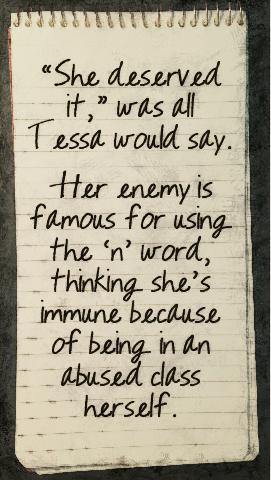 “She deserved
it,” was all
Tessa would say.
Her enemy is
famous for using
the ‘n’ word,
thinking she’s
immune because
of being in an
abused class
herself.